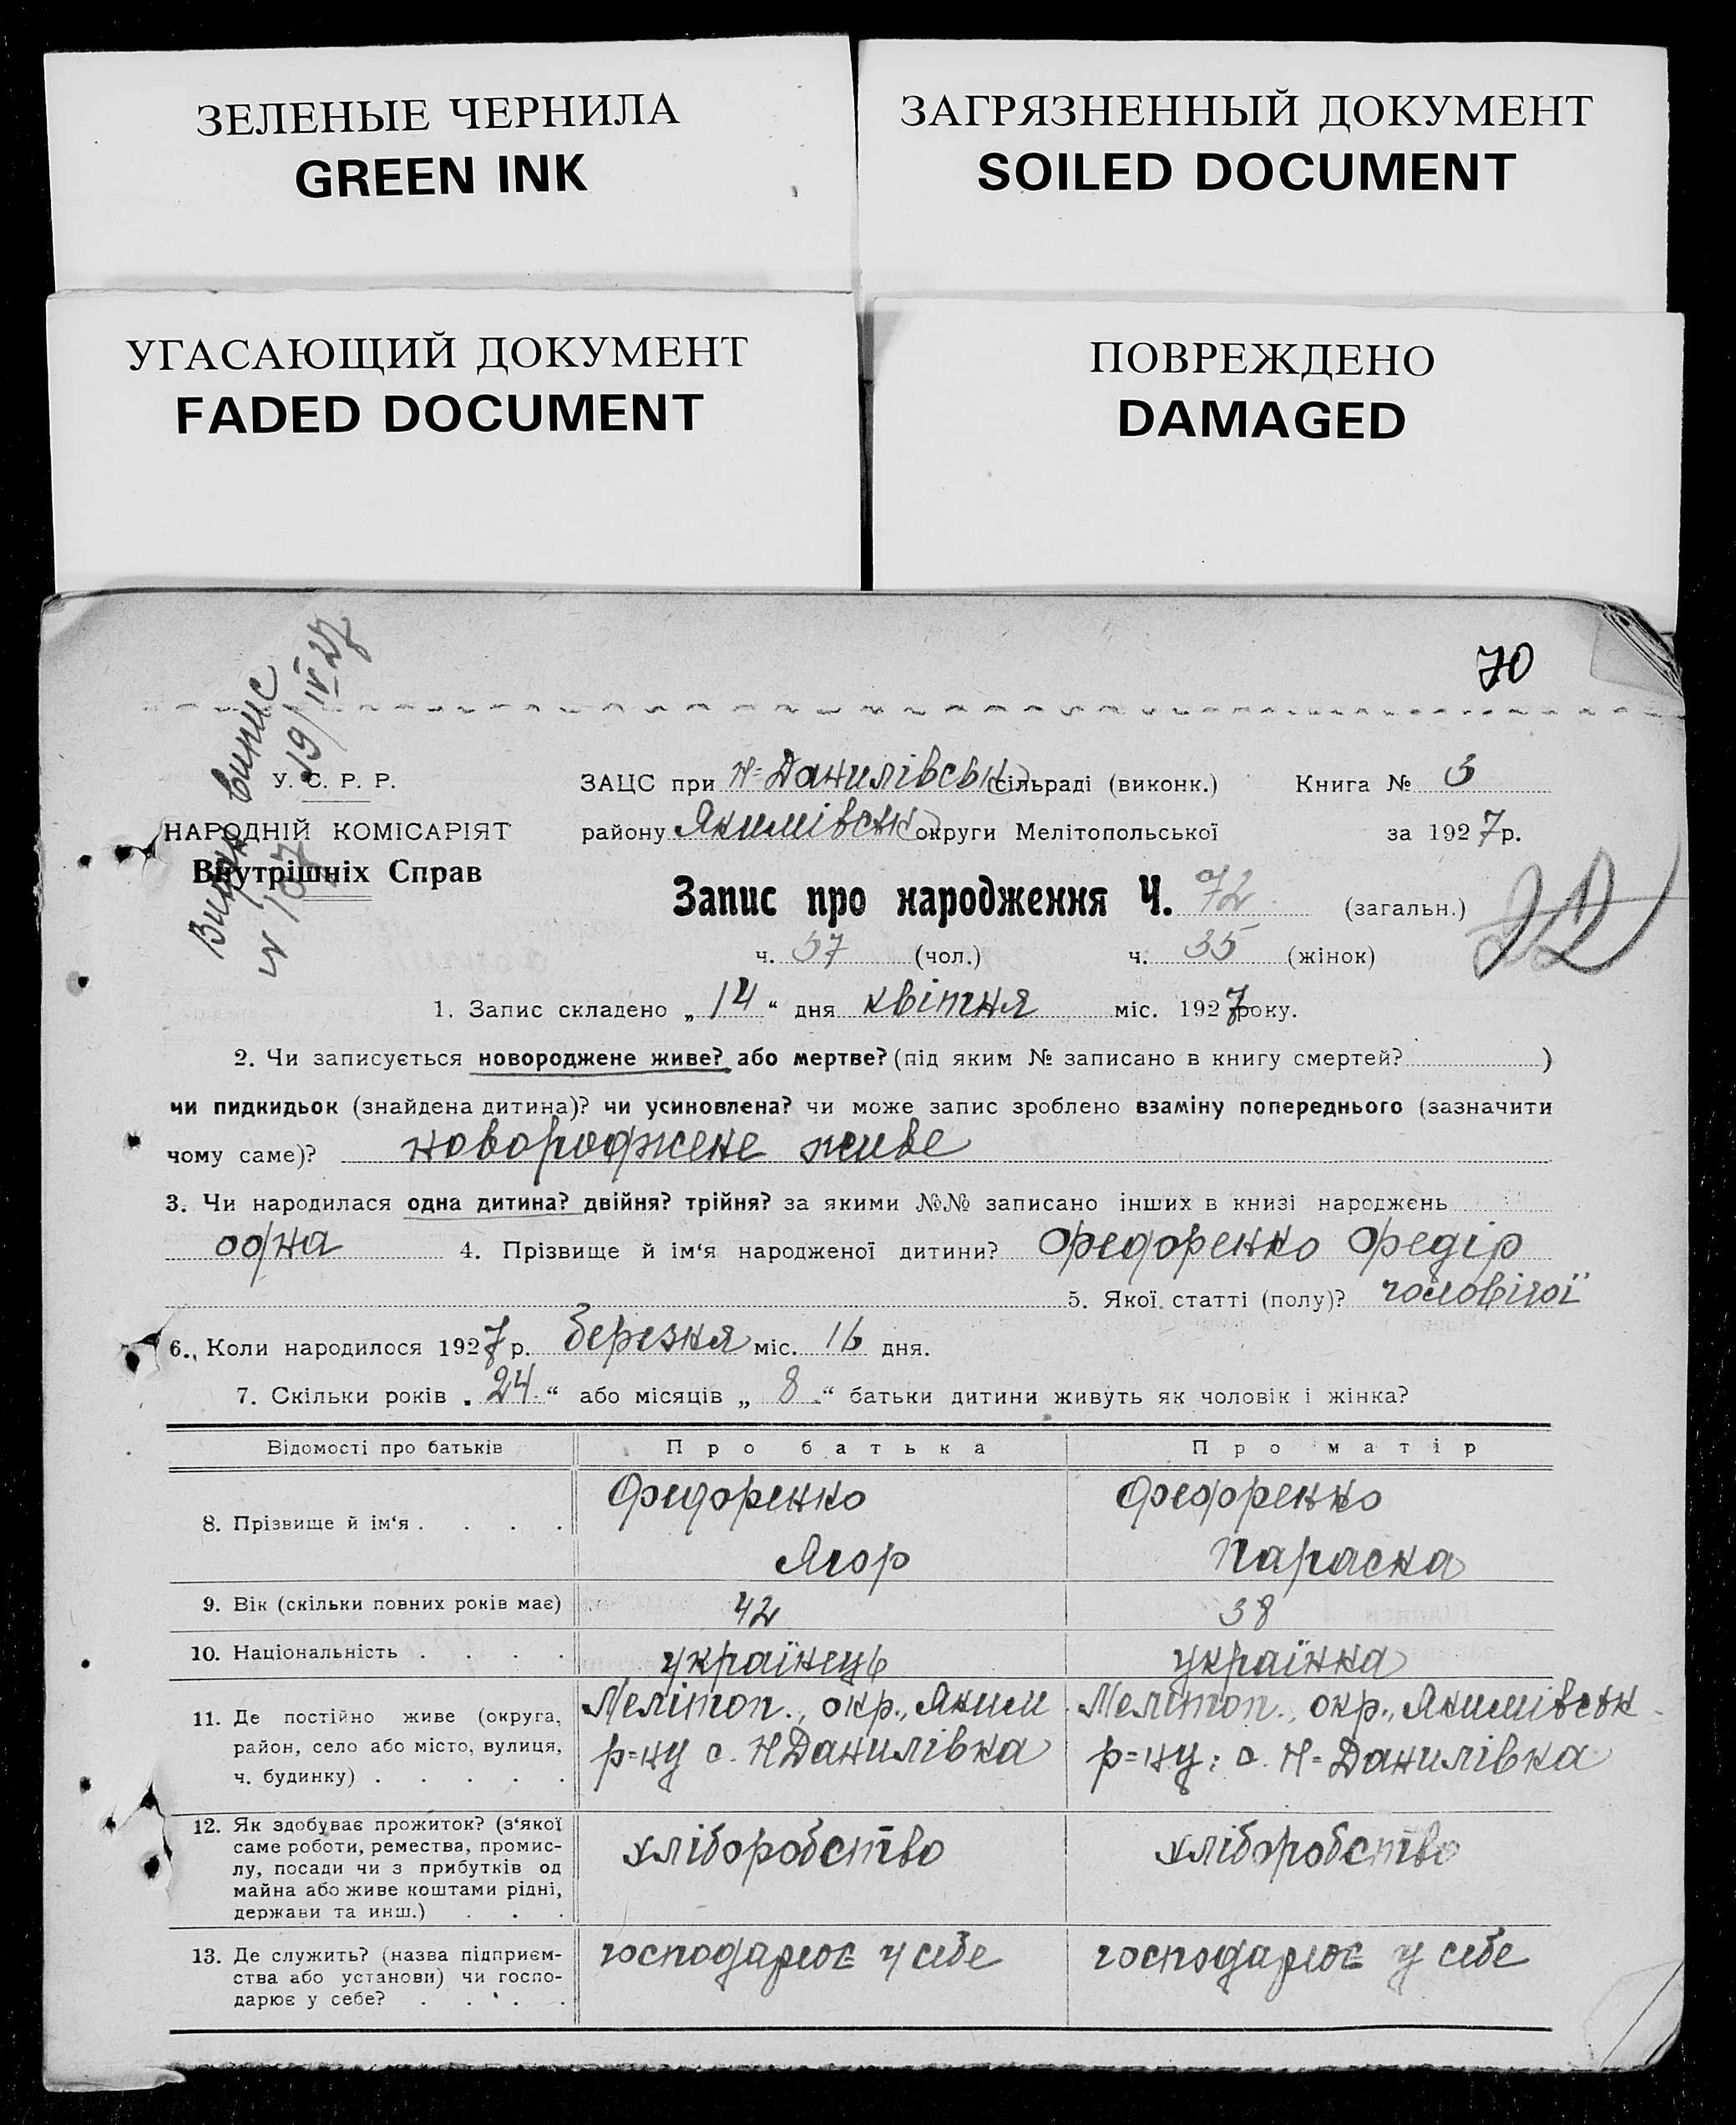 ЗЕЛЕНЫЕ ЧЕРНИЛА
GREEN INK
ЗАГРЯЗНЕННЫЙ ДОКУМЕНТ
SOILED DOCUMENT
УГАСАЮЩИЙ ДОКУМЕНТ
FADED DOCUMENT
ПОВРЕЖДЕНО
DAMAGED
70
випис
19/IV-27
№ 107
У. С. Р. Р.
НАРОДНІЙ КОМІСАРІЯТ
Внутрішніх Справ
ЗАЦС при Н-Данилівськ сільраді (виконк.) Книга №
району Якимівськ округи Мелітопольської за 1927 р.
Запис про народження Ч. 72 (загальн.)
ч. 37 (чол.) ч. 35 (жінок)
1. Запис складено „ 14 “ дня квітня міс. 1927 року.
2. Чи записується новороджене живе? або мертве? (під яким № записано в книгу смертей? )
чи пидкидьок (знайдена дитина)? чи усиновлена? чи може запис зроблено взаміну попереднього (зазначити
чому саме)? новороджене живе
3. Чи народилася одна дитина? двійня? трійня? за якими №№ записано інших в книзі народжень
одна 4. Прізвище й ім‘я народженої дитини? Федоренко Федір
5. Якої статті (полу)? чоловічої
6. Коли народилося 1927 р. березня міс. 16 дня.
7. Скільки років „ 24 “ або місяців „ 8 “ батьки дитини живуть як чоловік і жінка?
Відомості про батьків Про батька Про матір
8. Прізвище й ім‘я . . . . Федоренко Ягор Федоренко Параска
9. Вік (скільки повних років має) 42 38
10. Національність . . . . українець українка
11. Де постійно живе (округа,
район, село або місто, вулиця,
ч. будинку) . . . . .
Мелітоп., окр., Яким
р=ну с. Н Данилівка
Мелітоп., окр., Якимівськ
р=ну: с. Н=Данилівка
12. Як здобуває прожиток? (з‘якої
саме роботи, ремества, промис-
лу, посади чи з прибутків од
майна або живе коштами рідні,
держави та инш.) . . .
хліборобство хліборобство
13. Де служить? (назва підприєм-
ства або установи) чи госпо-
дарює у себе? . . . .
господарює у себе господарює у себе